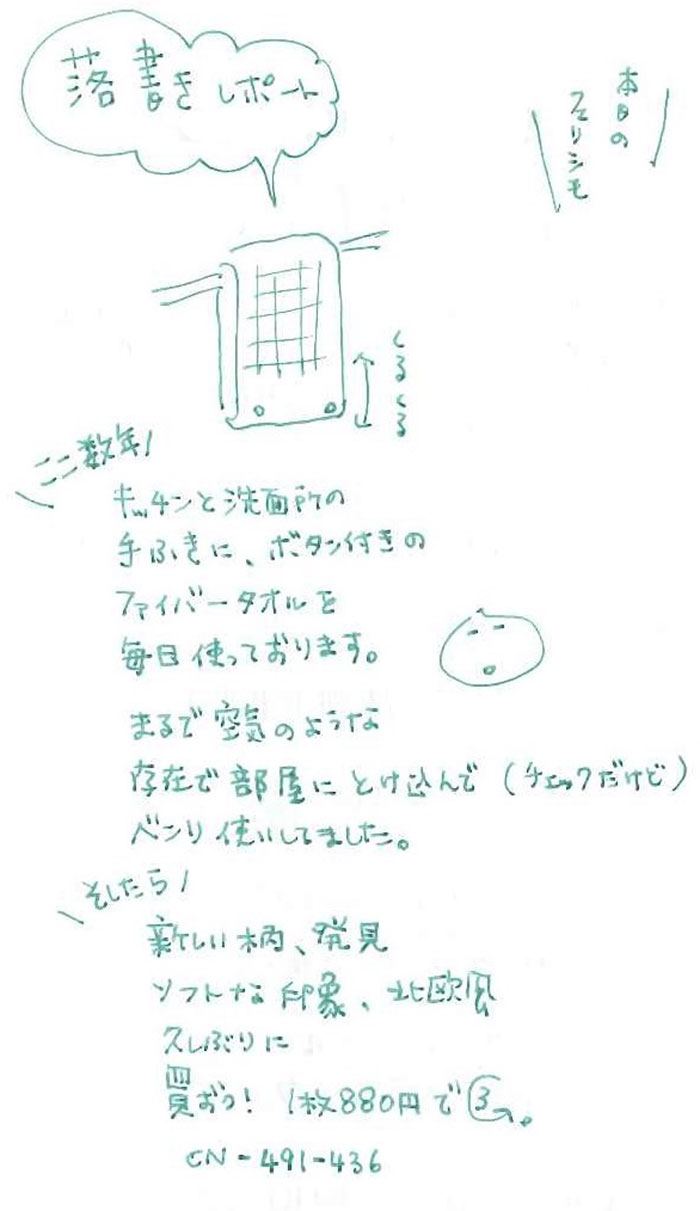 落書きレポート
本日の
フェリシモ
くるくる
ここ数年
キッチンと洗面所の
手ふきに、ボタン付きの
ファイバータオルを
毎日使っております。
まるで空気のような
存在で部屋にとけ込んで(チェックだけど)
ベンリ使いしてました。
そしたら
新しい柄、発見
ソフトな印象、北欧風
久しぶりに
買おう! 1枚880円で③
CN-491-436